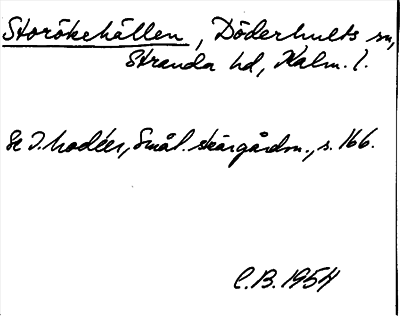 Storökehällen, Döderhults sn,
Stranda hd, Kalm. l.
Se I. Modéer, Smål. skärgårdsn., s. 166.
C.B. 1954